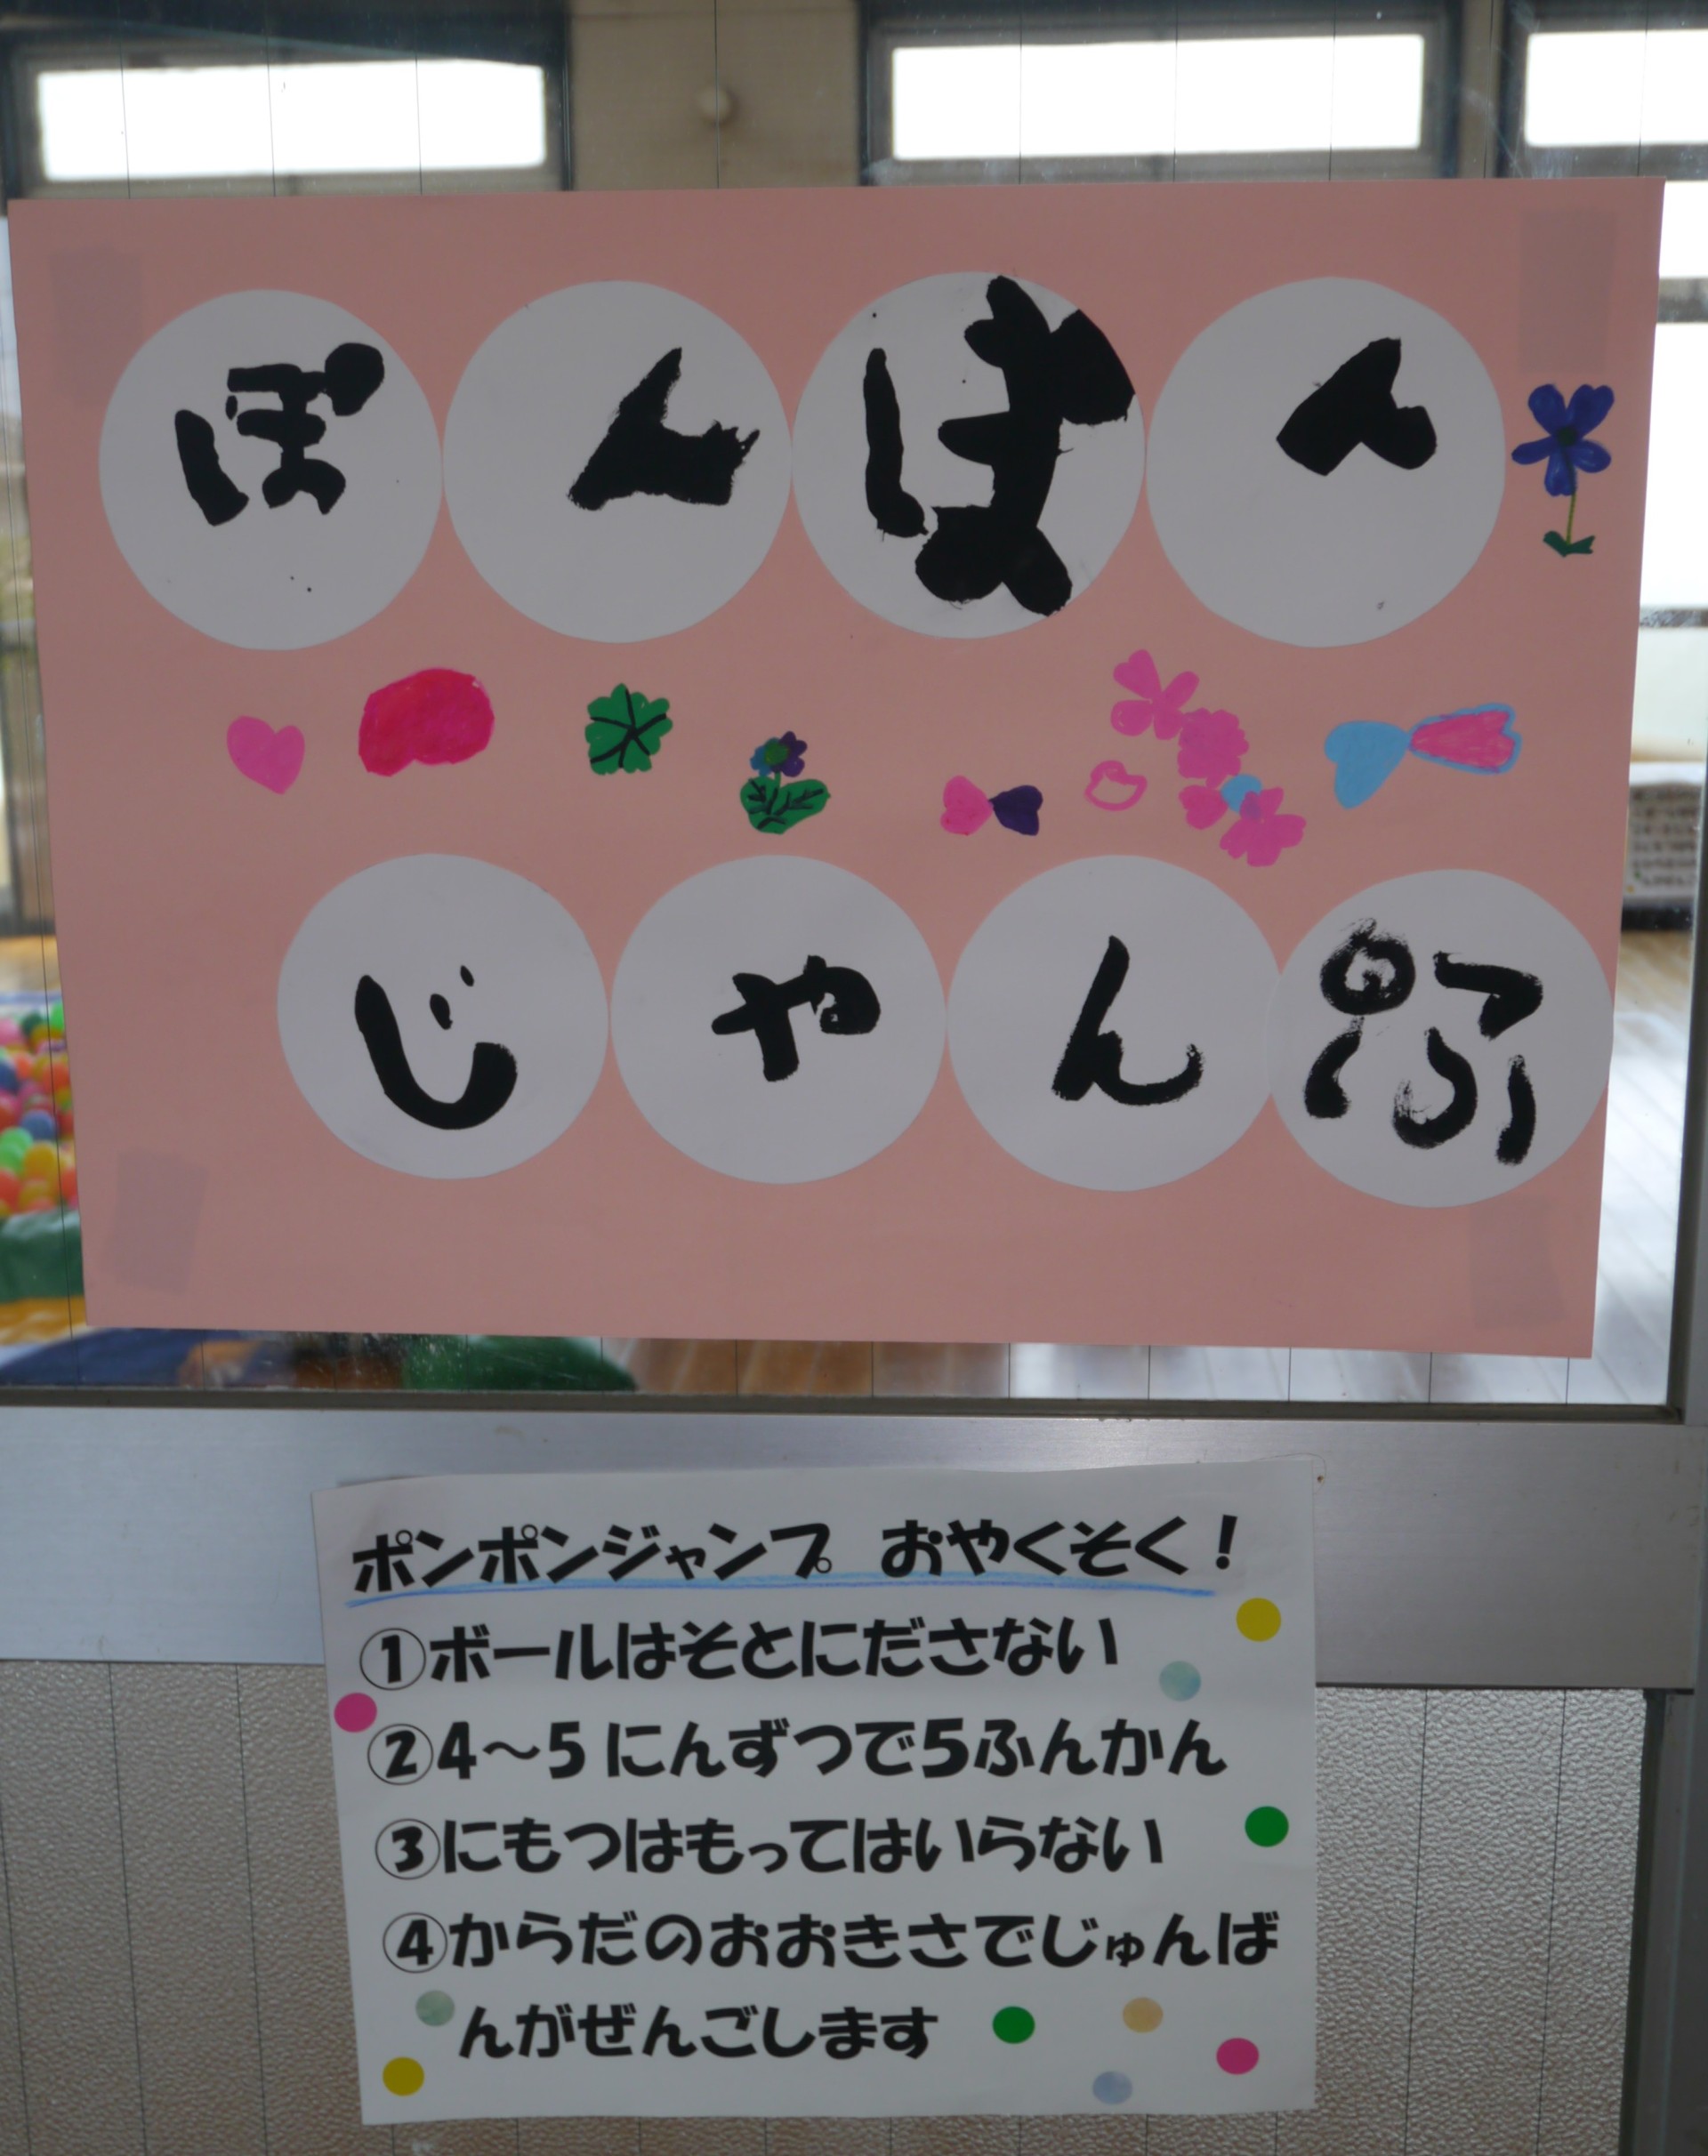 ぽんぽん
じゃんぷ
ポンポンジャンプ おやくそく！
①ボールはそとにださない
②4～5にんずつで5ふんかん
③にもつはもってはいらない
④からだのおおきさでじゅんば
んがぜんごします